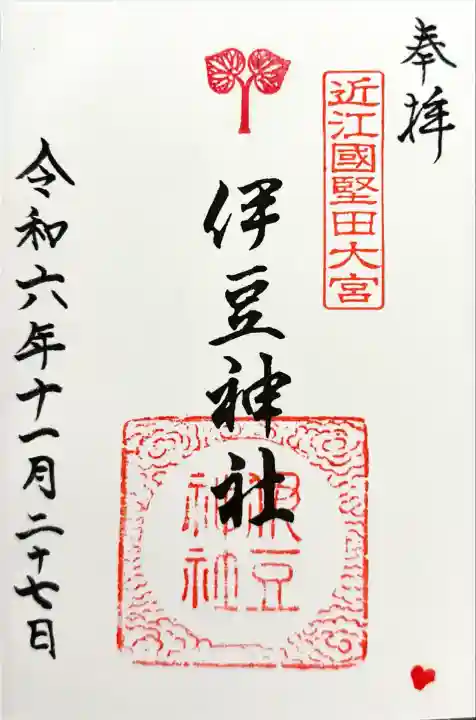 奉拝
近江國堅田大宮
伊豆神社
伊豆
神社
令和六年十一月二十七日